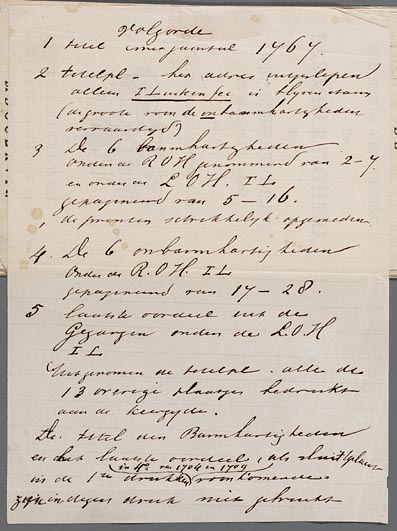 volgorde
1 titel 1767.
2 titelpl - het adres
alleen I Luiken fec is blyven staan
(de groote van de onbarmhartigheden
vervaardigd)
3 De 6 barmhartigheden
onder de R O H genummerd van 2-7
en onder de L O H. I L
gepagineerd van 5 — 16.
de prenten schrikkelijk opgesneden.
4. De 6 onbarmhartigheden
Onder de R. O. H. I L
gepagineerd van 17 — 28.
5 laatste oordeel uit de
onder de L. O. H
I L
Uitgenomen de titelpl. alle de
13 overige plaatjes bedrukt
aan de keerzyde.
De titel der Barmhartigheden
en het laatste oordeel, als sluitplaat
in 4º van 1704 en 1709
in de 1e drukken voorkomende
zijn in dezen druk niet gebruikt